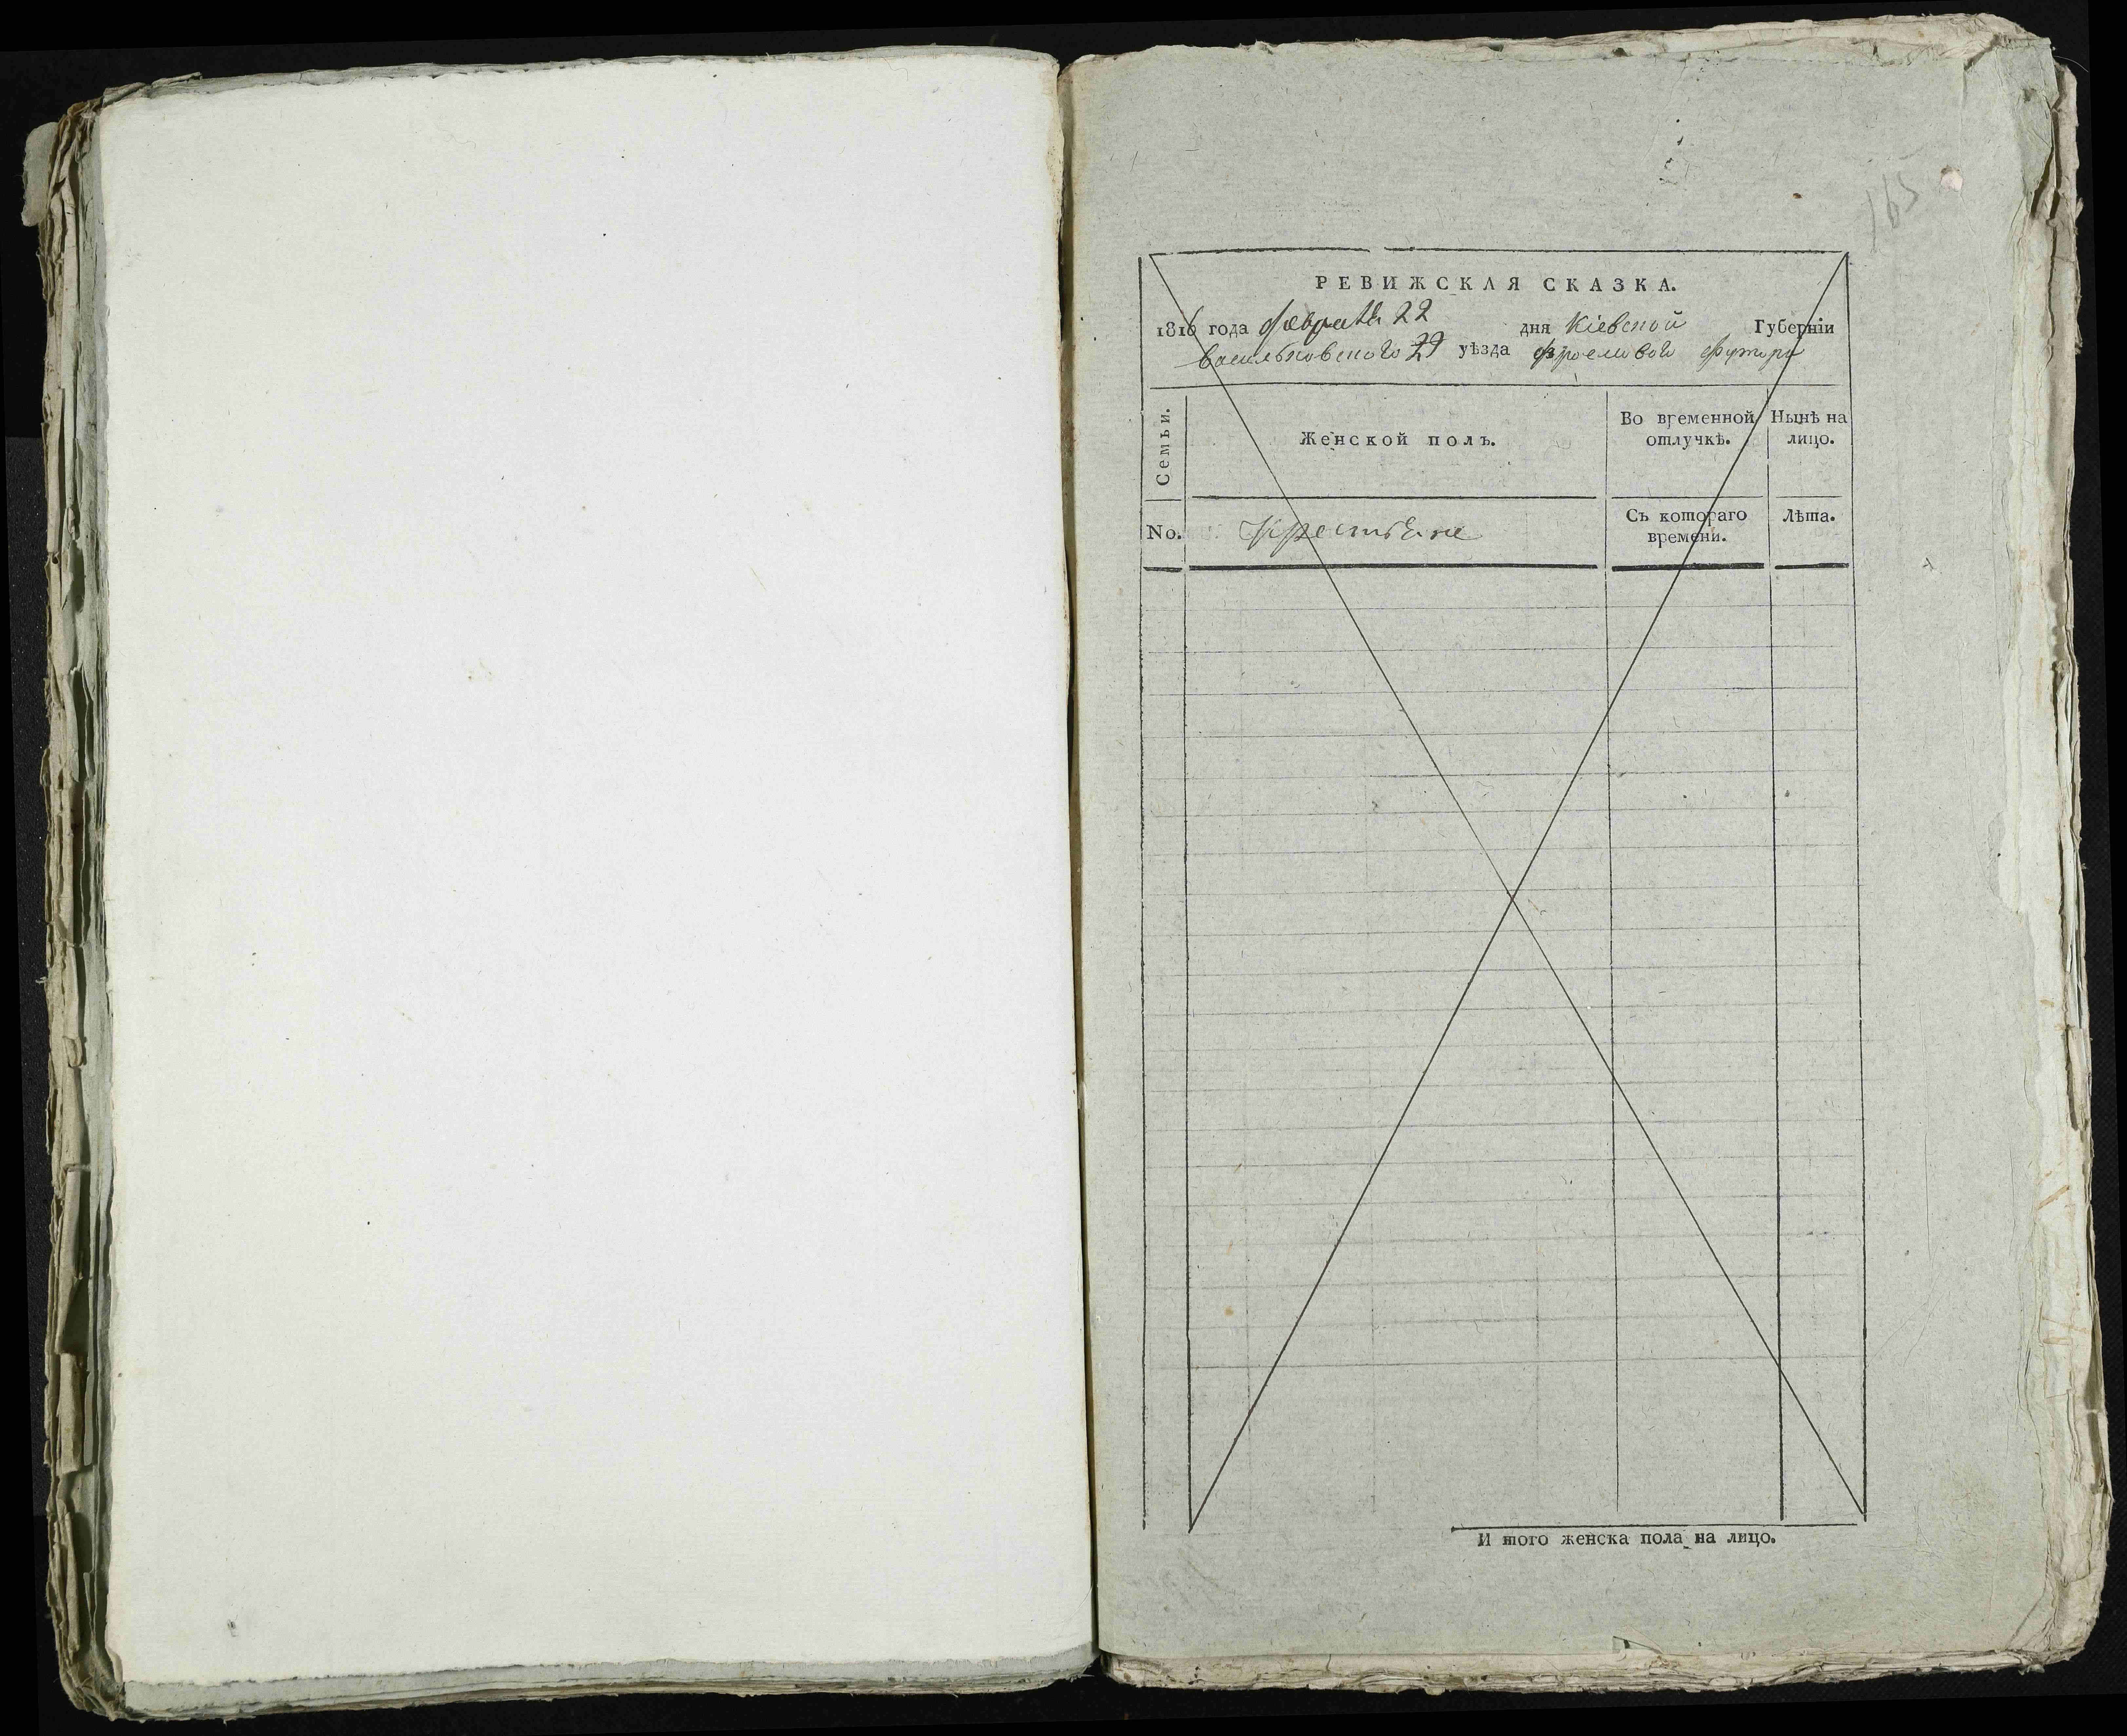 165
РЕВИЖСКАЯ СКАЗКА.
1816 года февраля 22 дня Кіевской Губерніи
Васильковского 29 уѣзда
Семьи.
Женской полъ.
Во временной отлучкѣ.
Нынѣ на лицо.
No.
Крестьяне
Съ котораго времени.
Лѣта.
И того женска пола на лицо.